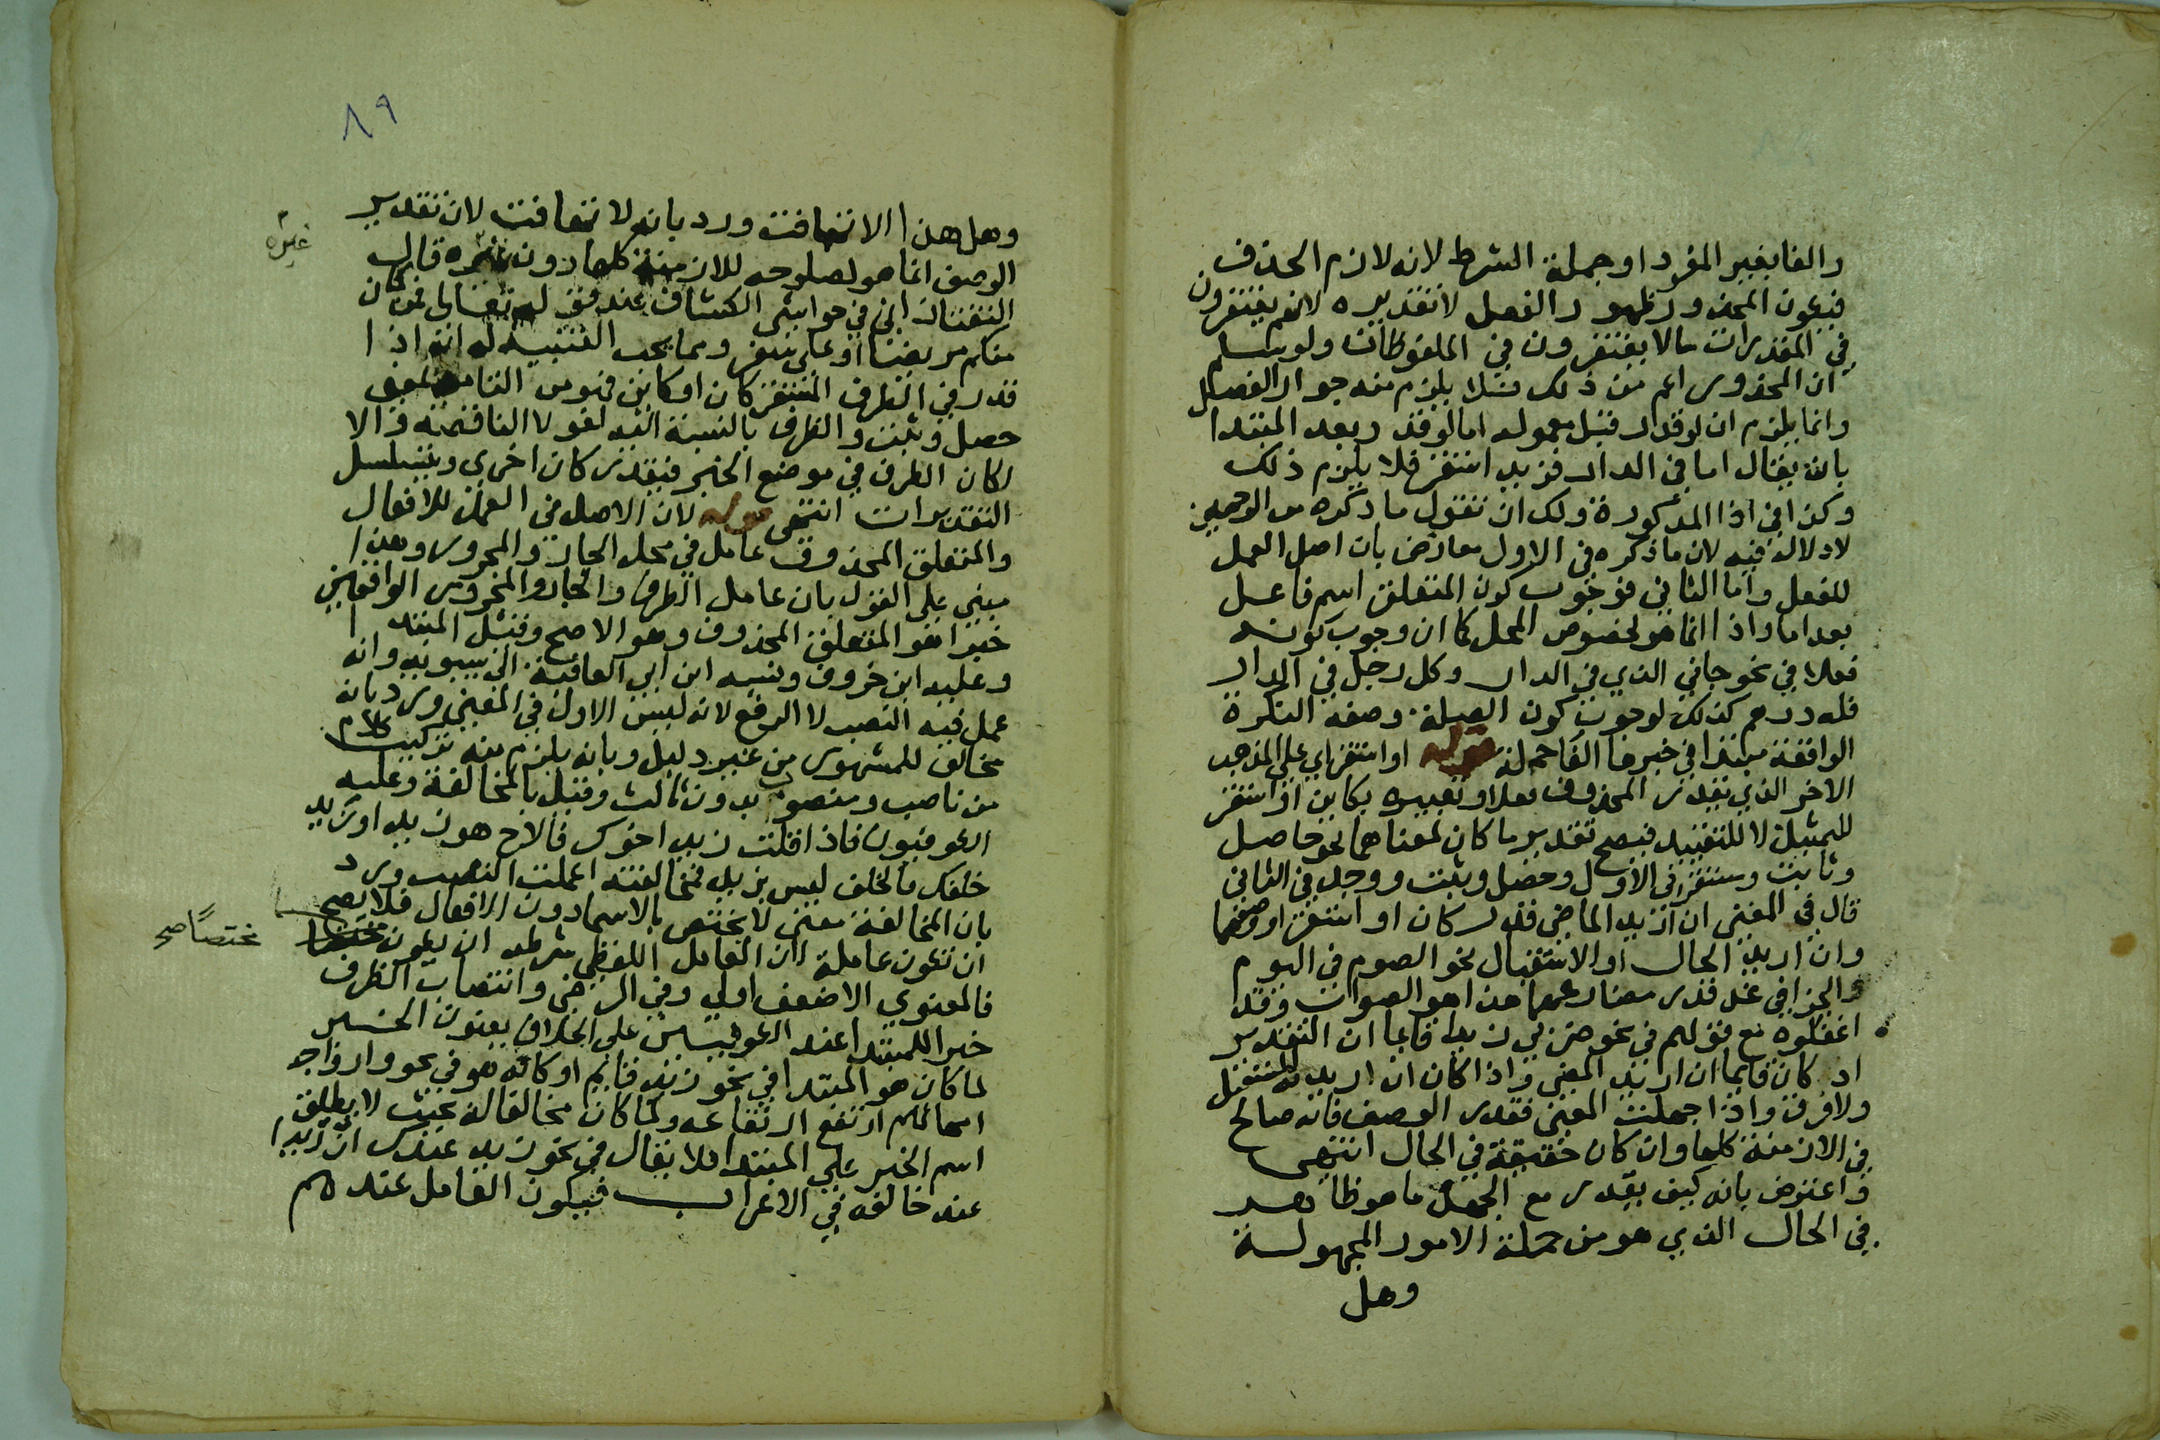 والفا بغير المفرد او جملة الشرط لانه لازم الحذف
فيكون المحذور ظهور والفصل لا تقديره لانهم يغتفرون
في المقدرات ما لا يغتفرون في الملفوظات ولو سلم
ان المحذور اعم من ذلك فلا يلزم منه جواز الفصل
وانما يلزم ان لو قدر قبل معموله اما لو قدر بعد المبتدا
بان يقال اما في الدار فزيد استقر فلا يلزم ذلك
وكذا في اذا المذكورة ولك ان تقول ما ذكره من الوجهين
لا دلالة فيه لان ما ذكره في الاول معارض بان اصل العمل
للفعل واما الثاني فوجوب كون المتعلق اسم فاعل
بعد اما واذا انما هو لخصوص المحل كما ان وجوب كونه
فعلا في نحو جاني الذي في الدار وكل رجل في الدار
فله درهم كذلك لوجوب كون الصلة وصفة النكرة
الواقعة مبتدا في خبرها الفا جملة قوله او استقر اي على المذهب
الاخر الذي تقدير المحذوف فعلا وتعبيره بكاين او استقر
للتمثيل لا للتقييد فيصح تقدير ما كان بمعناهما نحو حاصل
وثابت ومستقر في الاول وحصل وثبت ووجد في الثاني
قال في المغني ان اريد الماضي قدر كان او استقر او وصفهما
وان اريد الحال او الاستقبال نحو الصوم في اليوم
والجزا في غد قدر مضارعهما هذا هو الصواب وقد
اغفلوه مع قولهم في نحو ضربي زيدا قائما ان التقدير
اذ كان قائما ان اريد المضي واذا كان ان اريد به المستقبل
ولا فرق واذا جهلت المعنى فقدر الوصف فانه صالح
في الازمنة كلها وان كان حقيقة في الحال انتهى
واعترض بانه كيف يقدر مع الجهل ما هو ظاهر
في الحال الذي هو من جملة الامور المجهولة
وهل
٨٩
وهل هذا الا تهافت ورد بانه لا تهافت لان تقدير
الوصف انما هو لصلوحه للازمنة كلها دون غيره قال
غيره
التفتازاني في حواشي الكشاف عند قوله تعالى فمن كان
منكم مريضا او على سفر ومما يجب التنبيه له انه اذا
قدر في الظرف المستقر كان او كاين فهو من التامة بمعنى
حصل وثبت والظرف بالنسبة اليه لغو لا الناقصة والا
لكان الظرف في موضع الخبر فيقدر كان اخرى ويتسلسل
التقديرات انتهى قوله لان الاصل في العمل للافعال
والمتعلق المحذوف عامل في محل الجار والمجرور وهذا
مبني على القول بان عامل الظرف والجار والمجرور الواقعين
خبرا هو المتعلق المحذوف وهو الاصح وقيل المبتدا
وعليه ابن خروف ونسبه ابن ابي العافية الى سيبويه وانه
عمل فيه النصب لا الرفع لانه ليس الاول في المعنى ورد بانه
مخالف للمشهور من غير دليل وبانه يلزم منه تركيب كلام
من ناصب ومنصوب بدون ثالث وقيل بالمخالفة وعليه
الكوفيون فاذا قلت زيد اخوك فالاخ هو زيد او زيد
خلفك فالخلف ليس بزيد فمخالفته اعملت النصب ورد
بان المخالفة معنى لا يختص بالاسما دون الافعال فلا يصح
ان تكون عاملة لان العامل اللفظي شرطه ان يكون مختصا
مختصا صح
فالمعنوي الاضعف اولى وفي الرضي وانتصاب الظرف
خبرا للمبتدا عند الكوفيين على الخلاف يعنون الخبر
لما كان هو المبتدا في نحو زيد قايم او كانه هو في نحو وازواجه
امهاتهم ارتفع ارتفاعه ولما كان مخالفا له بحيث لا يطلق
اسم الخبر على المبتدا فلا يقال في نحو زيد عندك ان زيدا
عنده خالفه في الاعراب فيكون العامل عندهم